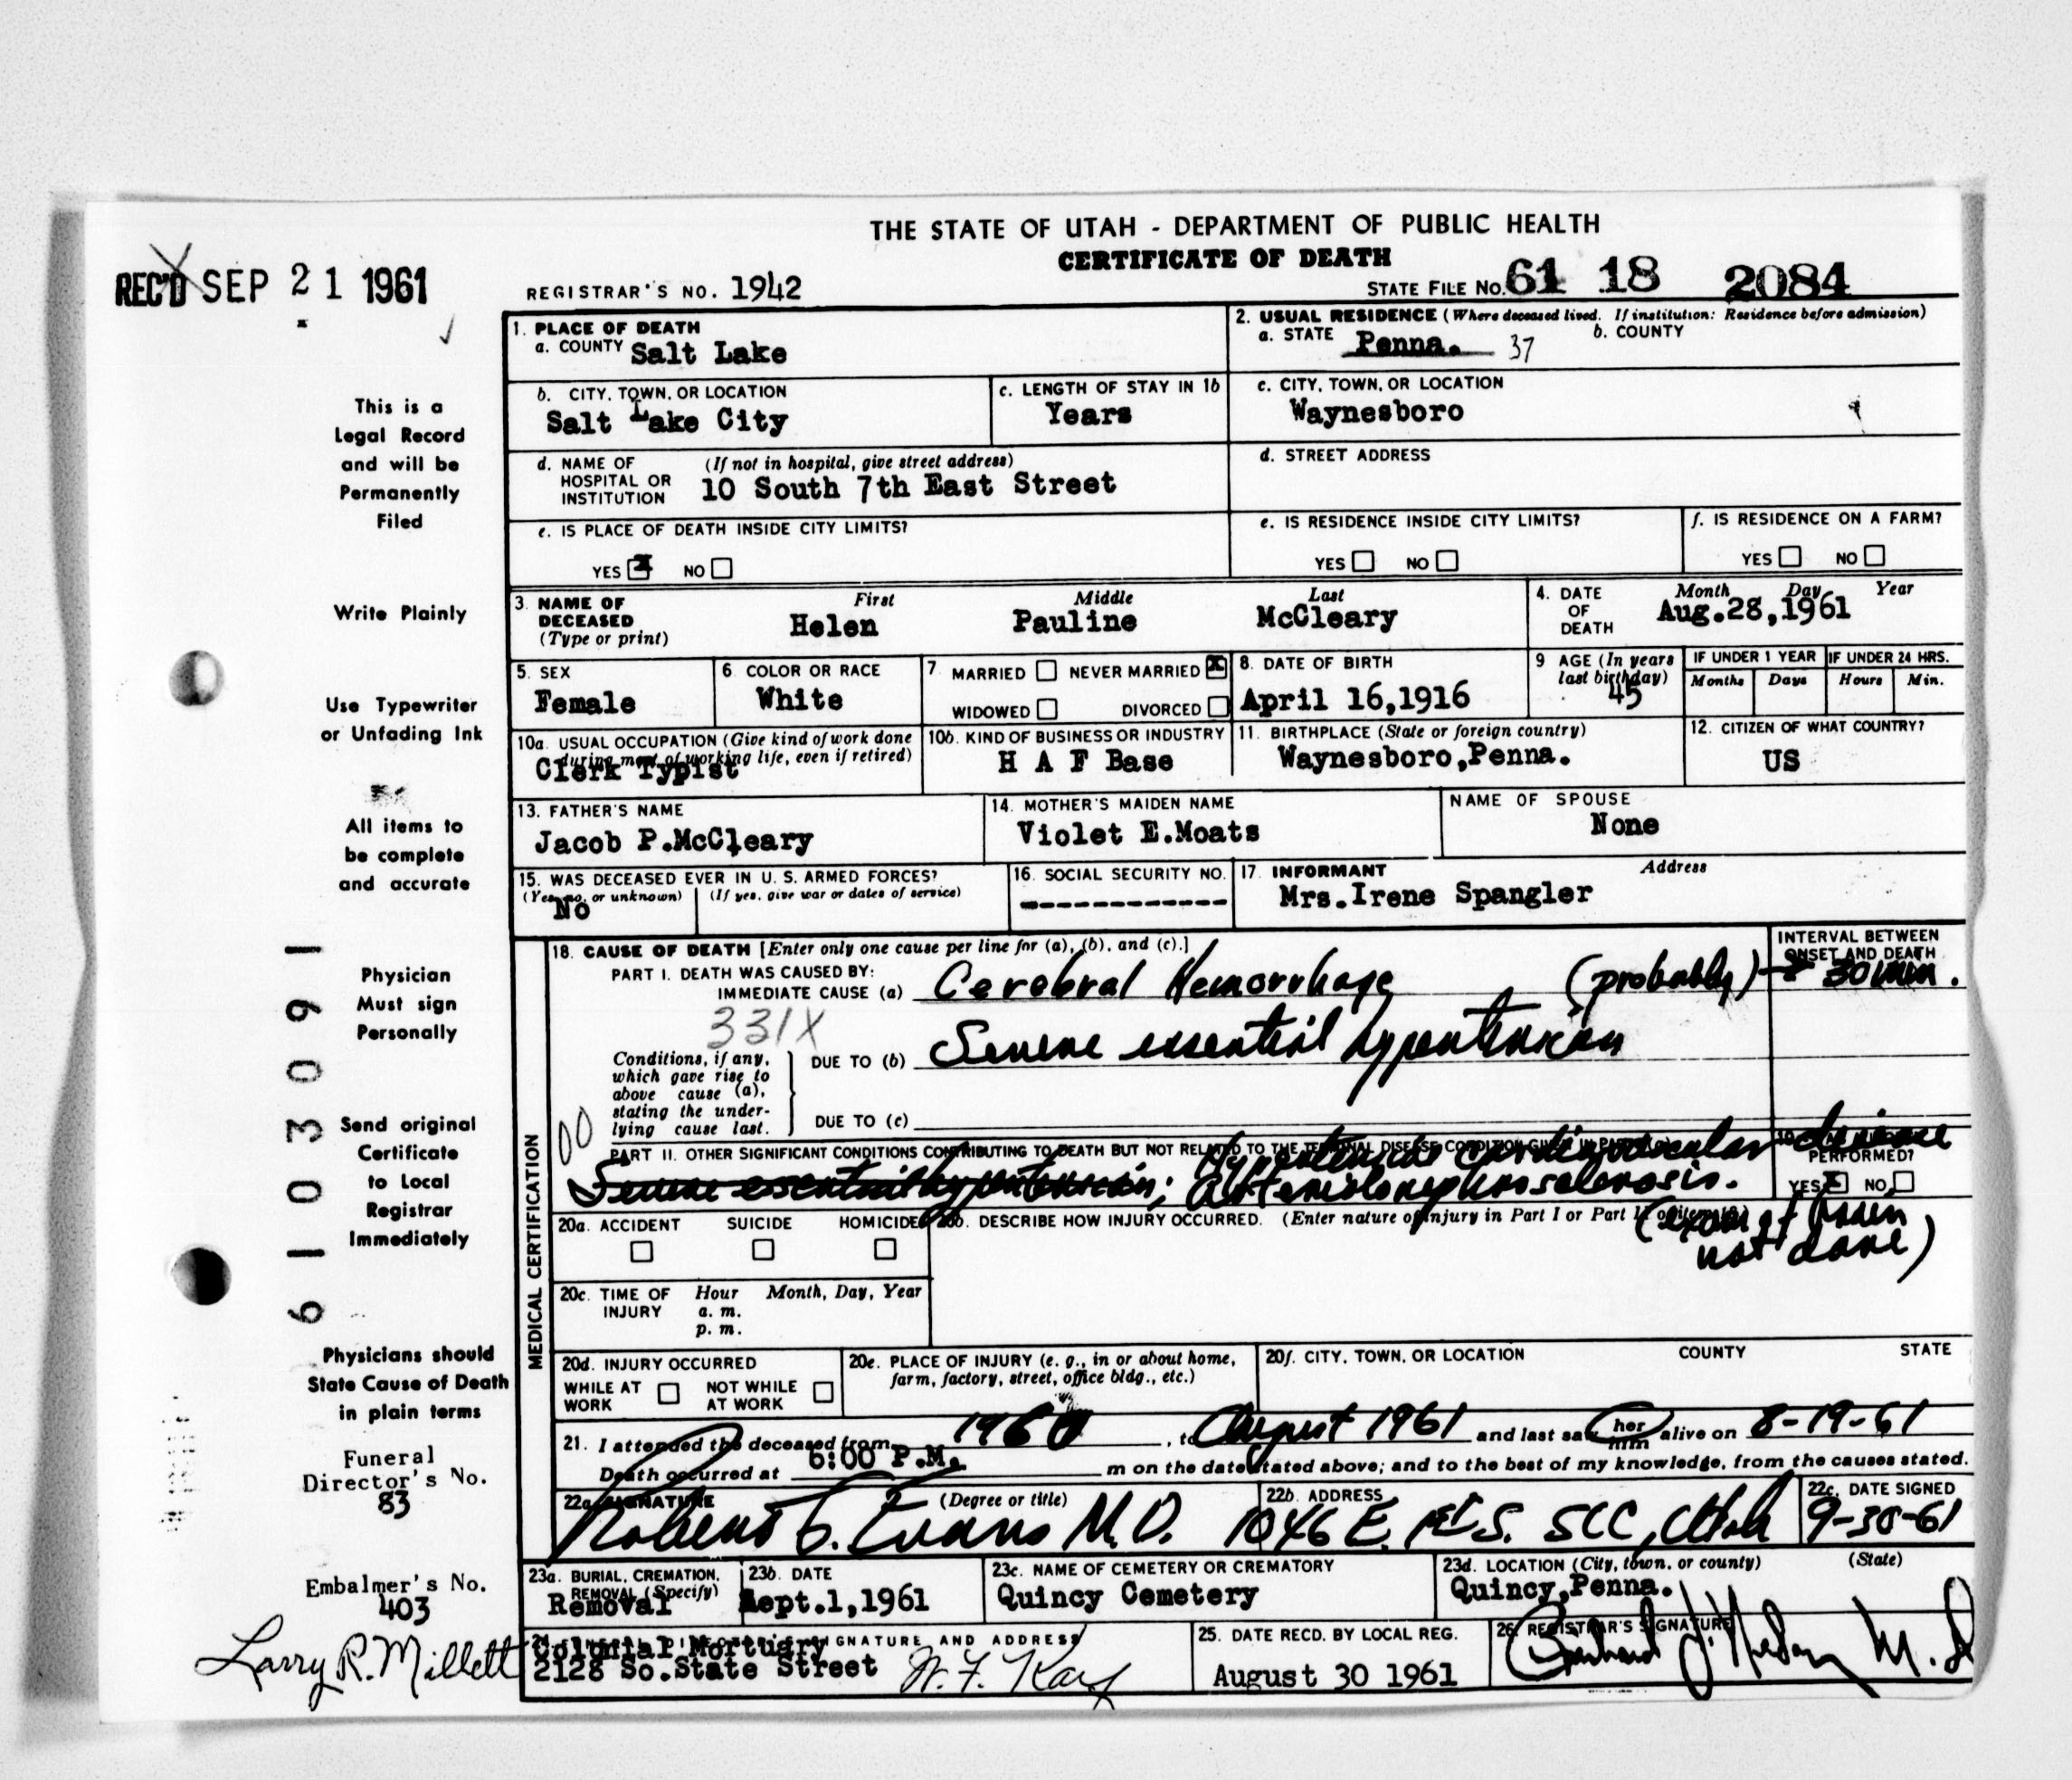 THE STATE OF UTAH - DEPARTMENT OF PUBLIC HEALTH
CERTIFICATE OF DEATH
REC'D SEP 21 1961
REGISTRAR'S NO. 1942
STATE FILE NO. 61 18 2084
This is a
Legal Record
and will be
Permanently
Filed
Write Plainly
Use Typewriter
or Unfading Ink
All items to
be complete
and accurate
Physician
Must sign
Personally
Send original
Certificate
to Local
Registrar
Immediately
Physicians should
State Cause of Death
in plain terms
Funeral
Director's No.
83
Embalmer's No.
403
Larry R. Millett
6103091
1. PLACE OF DEATH
a. COUNTY Salt Lake
2. USUAL RESIDENCE (Where deceased lived. If institution: Residence before admission)
a. STATE Penna. 37 b. COUNTY
b. CITY, TOWN, OR LOCATION
Salt Lake City
c. LENGTH OF STAY IN 1b
Years
c. CITY, TOWN, OR LOCATION
Waynesboro
d. NAME OF HOSPITAL OR INSTITUTION (If not in hospital, give street address)
10 South 7th East Street
d. STREET ADDRESS
e. IS PLACE OF DEATH INSIDE CITY LIMITS?
YES X NO
e. IS RESIDENCE INSIDE CITY LIMITS?
YES NO
f. IS RESIDENCE ON A FARM?
YES NO
3. NAME OF DECEASED (Type or print)
First Middle Last
Helen Pauline McCleary
4. DATE OF DEATH Month Day Year
Aug.28,1961
5. SEX
Female
6. COLOR OR RACE
White
7. MARRIED NEVER MARRIED X
WIDOWED DIVORCED
8. DATE OF BIRTH
April 16,1916
9 AGE (In years last birthday)
45
IF UNDER 1 YEAR IF UNDER 24 HRS.
Months Days Hours Min.
10a. USUAL OCCUPATION (Give kind of work done during most of working life, even if retired)
Clerk Typist
10b. KIND OF BUSINESS OR INDUSTRY
H A F Base
11. BIRTHPLACE (State or foreign country)
Waynesboro,Penna.
12. CITIZEN OF WHAT COUNTRY?
US
13. FATHER'S NAME
Jacob P.McCleary
14. MOTHER'S MAIDEN NAME
Violet E.Moats
NAME OF SPOUSE
None
15. WAS DECEASED EVER IN U. S. ARMED FORCES?
(Yes, no, or unknown) (If yes, give war or dates of service)
No
16. SOCIAL SECURITY NO.
------------
17. INFORMANT Address
Mrs.Irene Spangler
MEDICAL CERTIFICATION
18. CAUSE OF DEATH [Enter only one cause per line for (a), (b), and (c).]
INTERVAL BETWEEN ONSET AND DEATH
PART I. DEATH WAS CAUSED BY:
IMMEDIATE CAUSE (a) Cerebral Hemorrhage (probably) 30 min.
331X
Conditions, if any,
which gave rise to
above cause (a),
stating the under-
lying cause last.
DUE TO (b) Severe essential hypertension
DUE TO (c)
00
PART II. OTHER SIGNIFICANT CONDITIONS CONTRIBUTING TO DEATH BUT NOT RELATED TO THE TERMINAL DISEASE CONDITION GIVEN IN PART I(a)
Hypertensive cardiovascular disease
Severe essential hypertension; arteriolonephrosclerosis.
PERFORMED?
YES X NO
(exam of brain
not done)
20a. ACCIDENT SUICIDE HOMICIDE
20b. DESCRIBE HOW INJURY OCCURRED. (Enter nature of injury in Part I or Part II of item 18.)
20c. TIME OF INJURY Hour Month, Day, Year
a. m.
p. m.
20d. INJURY OCCURRED
WHILE AT WORK NOT WHILE AT WORK
20e. PLACE OF INJURY (e. g., in or about home, farm, factory, street, office bldg., etc.)
20f. CITY, TOWN, OR LOCATION COUNTY STATE
21. I attended the deceased from 1960, to August 1961 and last saw her him alive on 8-19-61
Death occurred at 6:00 P.M. m on the date stated above; and to the best of my knowledge, from the causes stated.
22a. SIGNATURE (Degree or title)
Evans M.D.
22b. ADDRESS
1046 E. 1st S. SLC, Utah
22c. DATE SIGNED
9-30-61
23a. BURIAL, CREMATION, REMOVAL (Specify)
Removal
23b. DATE
Sept.1,1961
23c. NAME OF CEMETERY OR CREMATORY
Quincy Cemetery
23d. LOCATION (City, town, or county) (State)
Quincy,Penna.
24. FUNERAL DIRECTOR'S SIGNATURE AND ADDRESS
Colonial Mortuary
2128 So.State Street
25. DATE RECD. BY LOCAL REG.
August 30 1961
26. REGISTRAR'S SIGNATURE